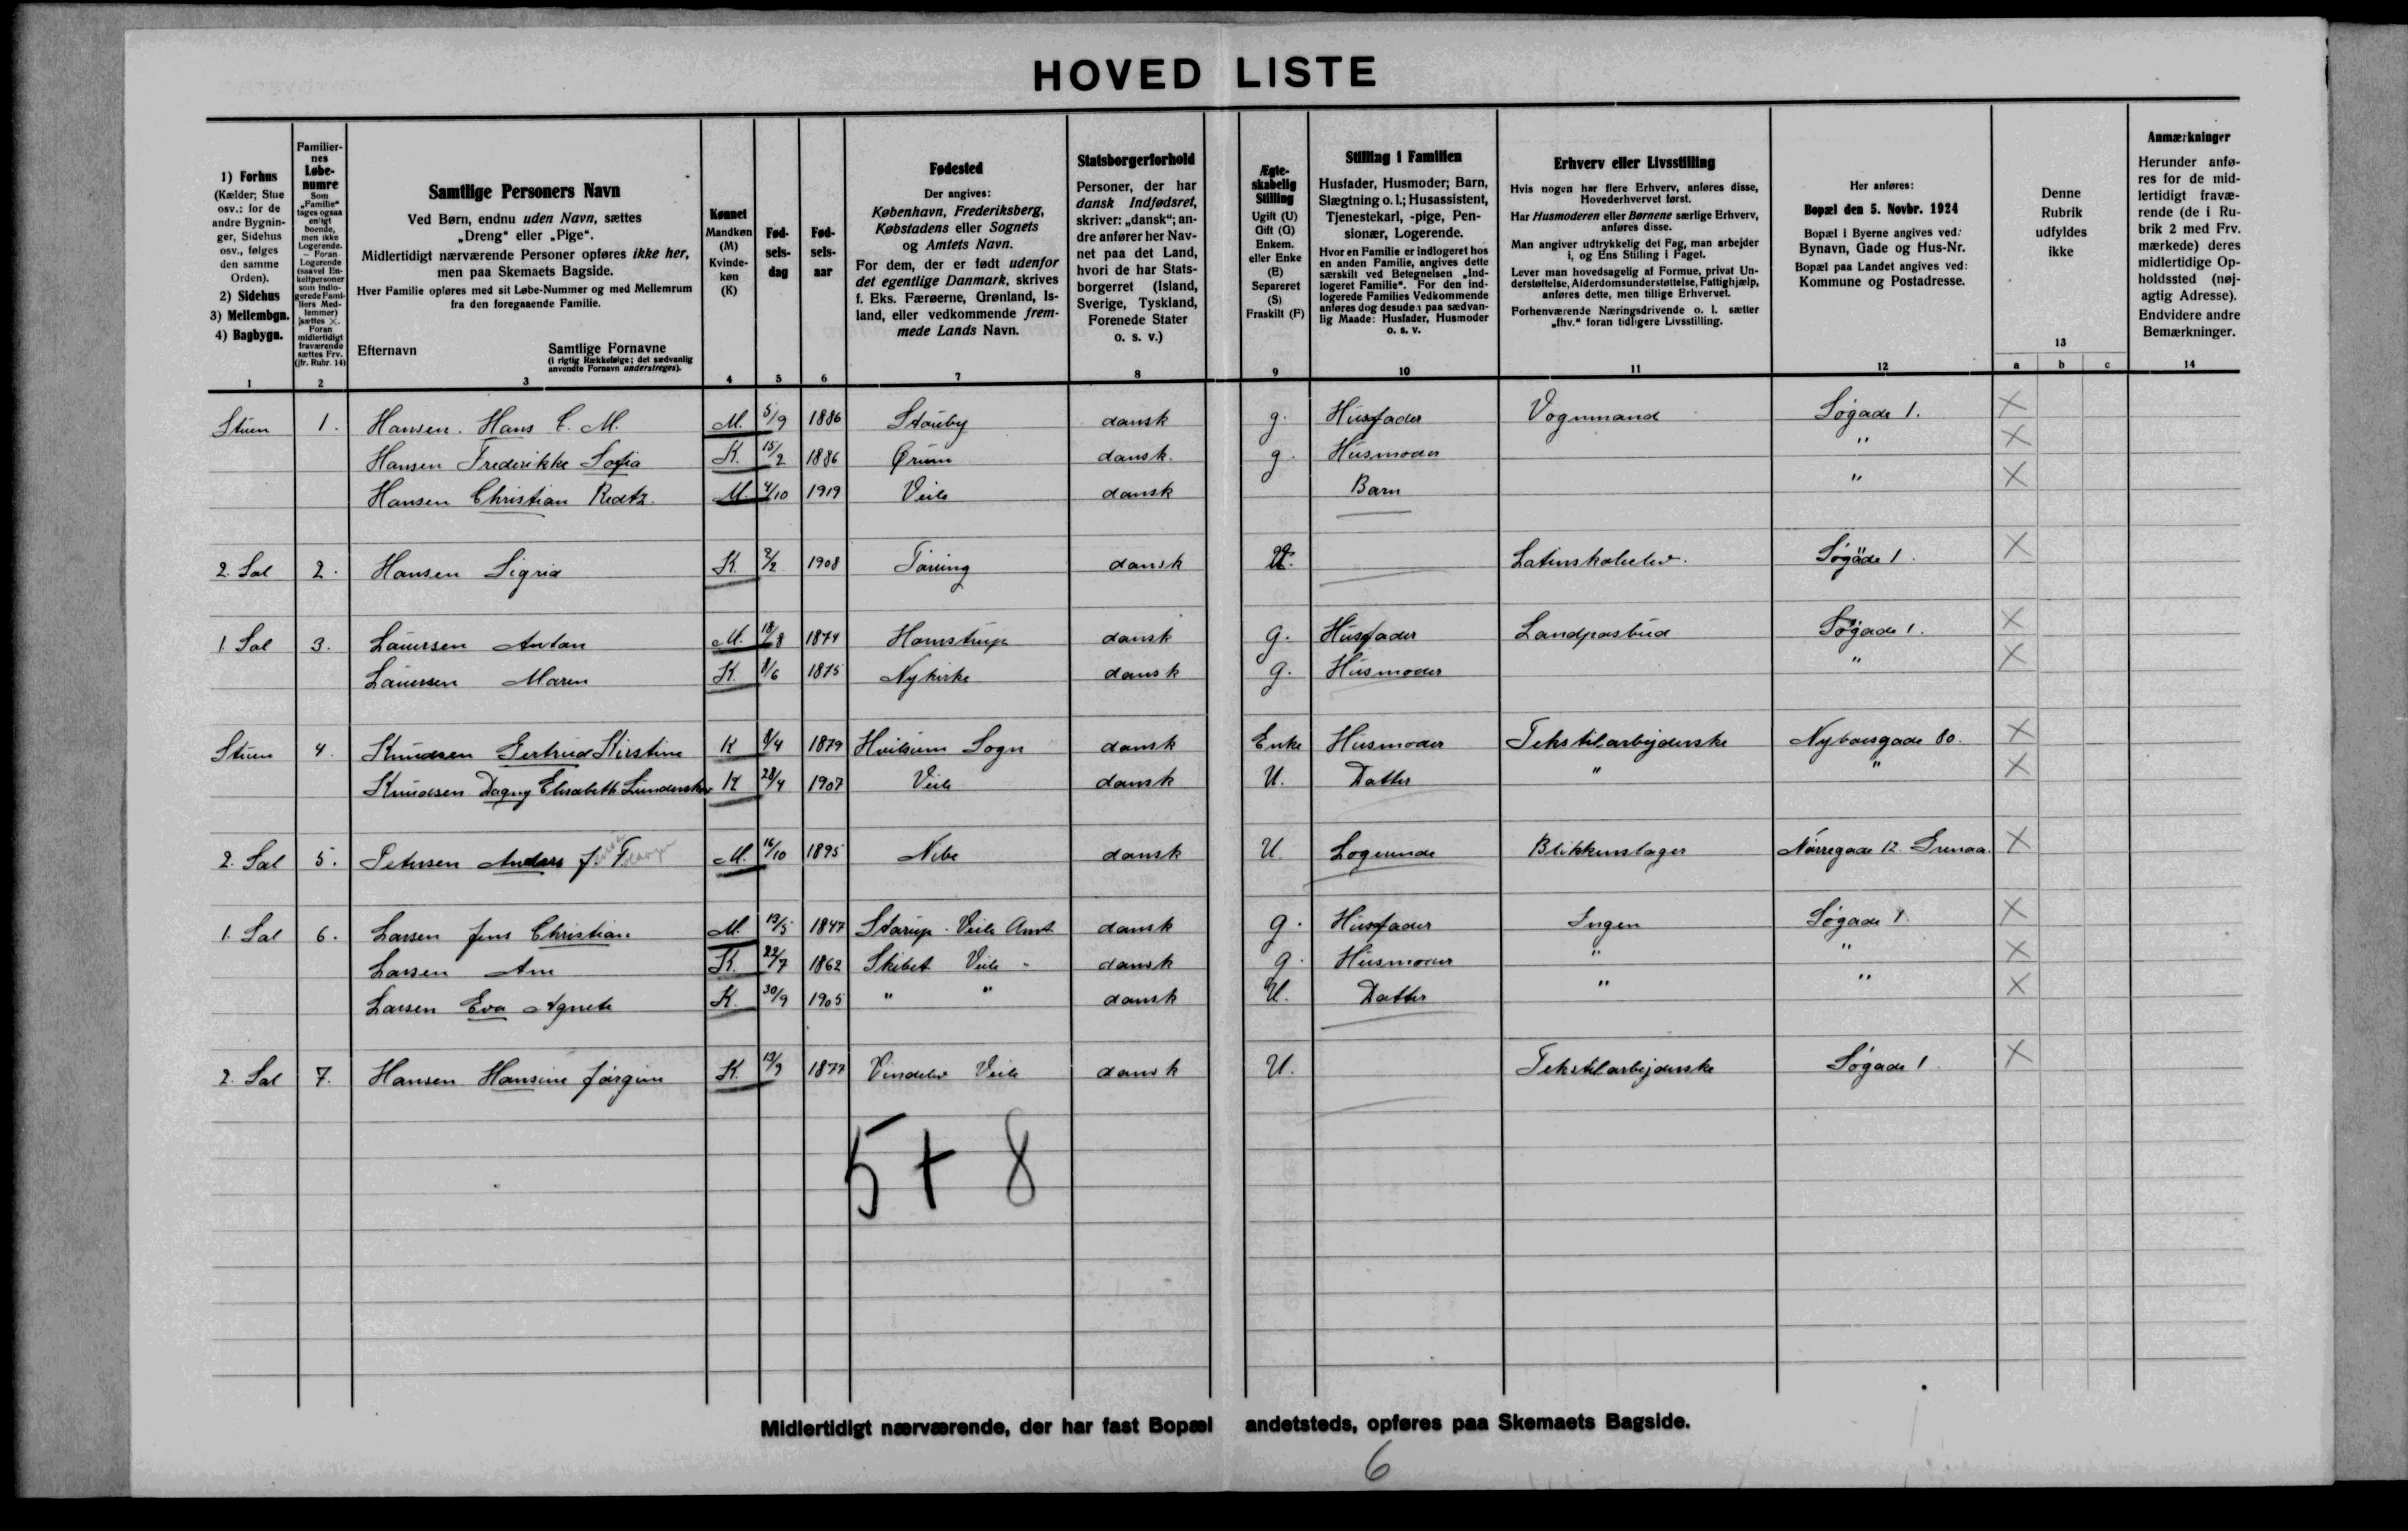 HOVED LISTE
1) Forhus
(Kælder; Stue
osv.: for de
andre Bygnin-
ger, Sidehus
osv., følges
den samme
Orden).
2) Sidehus
3) Mellembgn.
4) Bagbygn.
1
Familier-
nes
Løbe-
numre
Som
„Familie"
tages ogsaa
enligt
boende,
men ikke
Logerende.
— Foran
Logerende
(saavel En-
keltpersoner
som indlo-
gerede Fami-
liers Med-
lemmer)
sættes ×.
Foran
midlertidigt
fraværende
sættes Frv.
(jfr. Rubr. 14)
2
Samtlige Personers Navn
Ved Børn, endnu uden Navn, sættes
„Dreng" eller „Pige".
Midlertidigt nærværende Personer opføres ikke her,
men paa Skemaets Bagside.
Hver Familie opføres med sit Løbe-Nummer og med Mellemrum
fra den foregaaende Familie.
Efternavn
Samtlige Fornavne
(i rigtig Rækkefølge; det sædvanlig
anvendte Fornavn understreges).
3
Kønnet
Mandkøn
(M)
Kvinde-
køn
(K)
4
Fød-
sels-
dag
5
Fød-
sels-
aar
6
Fødested
Der angives:
København, Frederiksberg,
Købstadens eller Sognets
og Amtets Navn.
For dem, der er født udenfor
det egentlige Danmark, skrives
f. Eks. Færøerne, Grønland, Is-
land, eller vedkommende frem-
mede Lands Navn.
7
Statsborgerforhold
Personer, der har
dansk Indfødsret,
skriver: „dansk"; an-
dre anfører her Nav-
net paa det Land,
hvori de har Stats-
borgerret (Island,
Sverige, Tyskland,
Forenede Stater
o. s. v.)
8
Ægte-
skabelig
Stilling
Ugift (U)
Gift (G)
Enkem.
eller Enke
(E)
Separeret
(S)
Fraskilt (F)
9
Stilling i Familien
Husfader, Husmoder; Barn,
Slægtning o. l.; Husassistent,
Tjenestekarl, -pige, Pen-
sionær, Logerende.
Hvor en Familie er indlogeret hos
en anden Familie, angives dette
særskilt ved Betegnelsen „Ind-
logeret Familie". For den ind-
logerede Families Vedkommende
anføres dog desuden paa sædvan-
lig Maade: Husfader, Husmoder
o. s. v.
10
Erhverv eller Livsstilling
Hvis nogen har flere Erhverv, anføres disse,
Hovederhvervet først.
Har Husmoderen eller Børnene særlige Erhverv,
anføres disse.
Man angiver udtrykkelig det Fag, man arbejder
i, og Ens Stilling i Faget.
Lever man hovedsagelig af Formue, privat Un-
derstøttelse, Alderdomsunderstøttelse, Fattighjælp,
anføres dette, men tillige Erhvervet.
Forhenværende Næringsdrivende o. l. sætter
„fhv." foran tidligere Livsstilling.
11
Her anføres:
Bopæl den 5. Novbr. 1924
Bopæl i Byerne angives ved:
Bynavn, Gade og Hus-Nr.
Bopæl paa Landet angives ved:
Kommune og Postadresse.
12
Denne
Rubrik
udfyldes
ikke
13
a b c
Anmærkninger
Herunder anfø-
res for de mid-
lertidigt fravæ-
rende (de i Ru-
brik 2 med Frv.
mærkede) deres
midlertidige Op-
holdssted (nøj-
agtig Adresse).
Endvidere andre
Bemærkninger.
14
Stuen 1. Hansen. Hans C. M. M. 5/9 1886 Stouby dansk g. Husfader Vognmand Søgade 1. ×
Hansen Frederikke Sofia K. 15/2 1886 Ørum dansk. g. Husmoder " ×
Hansen Christian Redtz. M. 4/10 1919 Veile dansk Barn " ×
2. Sal 2. Hansen Sigrid K. 2/2 1908 Tørring dansk U. Latinskoleelev. Søgade 1. ×
1. Sal 3. Laursen Anton M. 18/8 1874 Hornstrup dansk g. Husfader Landpostbud Søgade 1. ×
Laursen Maren K. 8/6 1875 Nykirke dansk g. Husmoder " ×
Stuen 4. Knudsen Gertrud Kirstine K 8/4 1879 Hvilsum Sogn dansk Enke Husmoder Tekstilarbejderske Nyboesgade 80. ×
Knudsen Dagny Elisabeth Lunderskov K 28/4 1907 Veile dansk U. Datter " " ×
2. Sal 5. Petersen Anders J. F. M. 16/10 1895 Nibe dansk U Logerende Blikkenslager Nørregade 12 Grenaa. ×
1. Sal 6. Larsen Jens Christian M 13/5 1847 Starup Veile Amt dansk g. Husfader Ingen Søgade 1 ×
Larsen Ane K. 22/7 1862 Skibet Veile " dansk g. Husmoder " " ×
Larsen Eva Agnete K. 30/9 1905 " " dansk U. Datter " " ×
2. Sal 7. Hansen Hansine Jørgine K. 13/9 1877 Vindelev Veile dansk U. Tekstilarbejderske Søgade 1. ×
5 + 8
Midlertidigt nærværende, der har fast Bopæl andetsteds, opføres paa Skemaets Bagside.
6